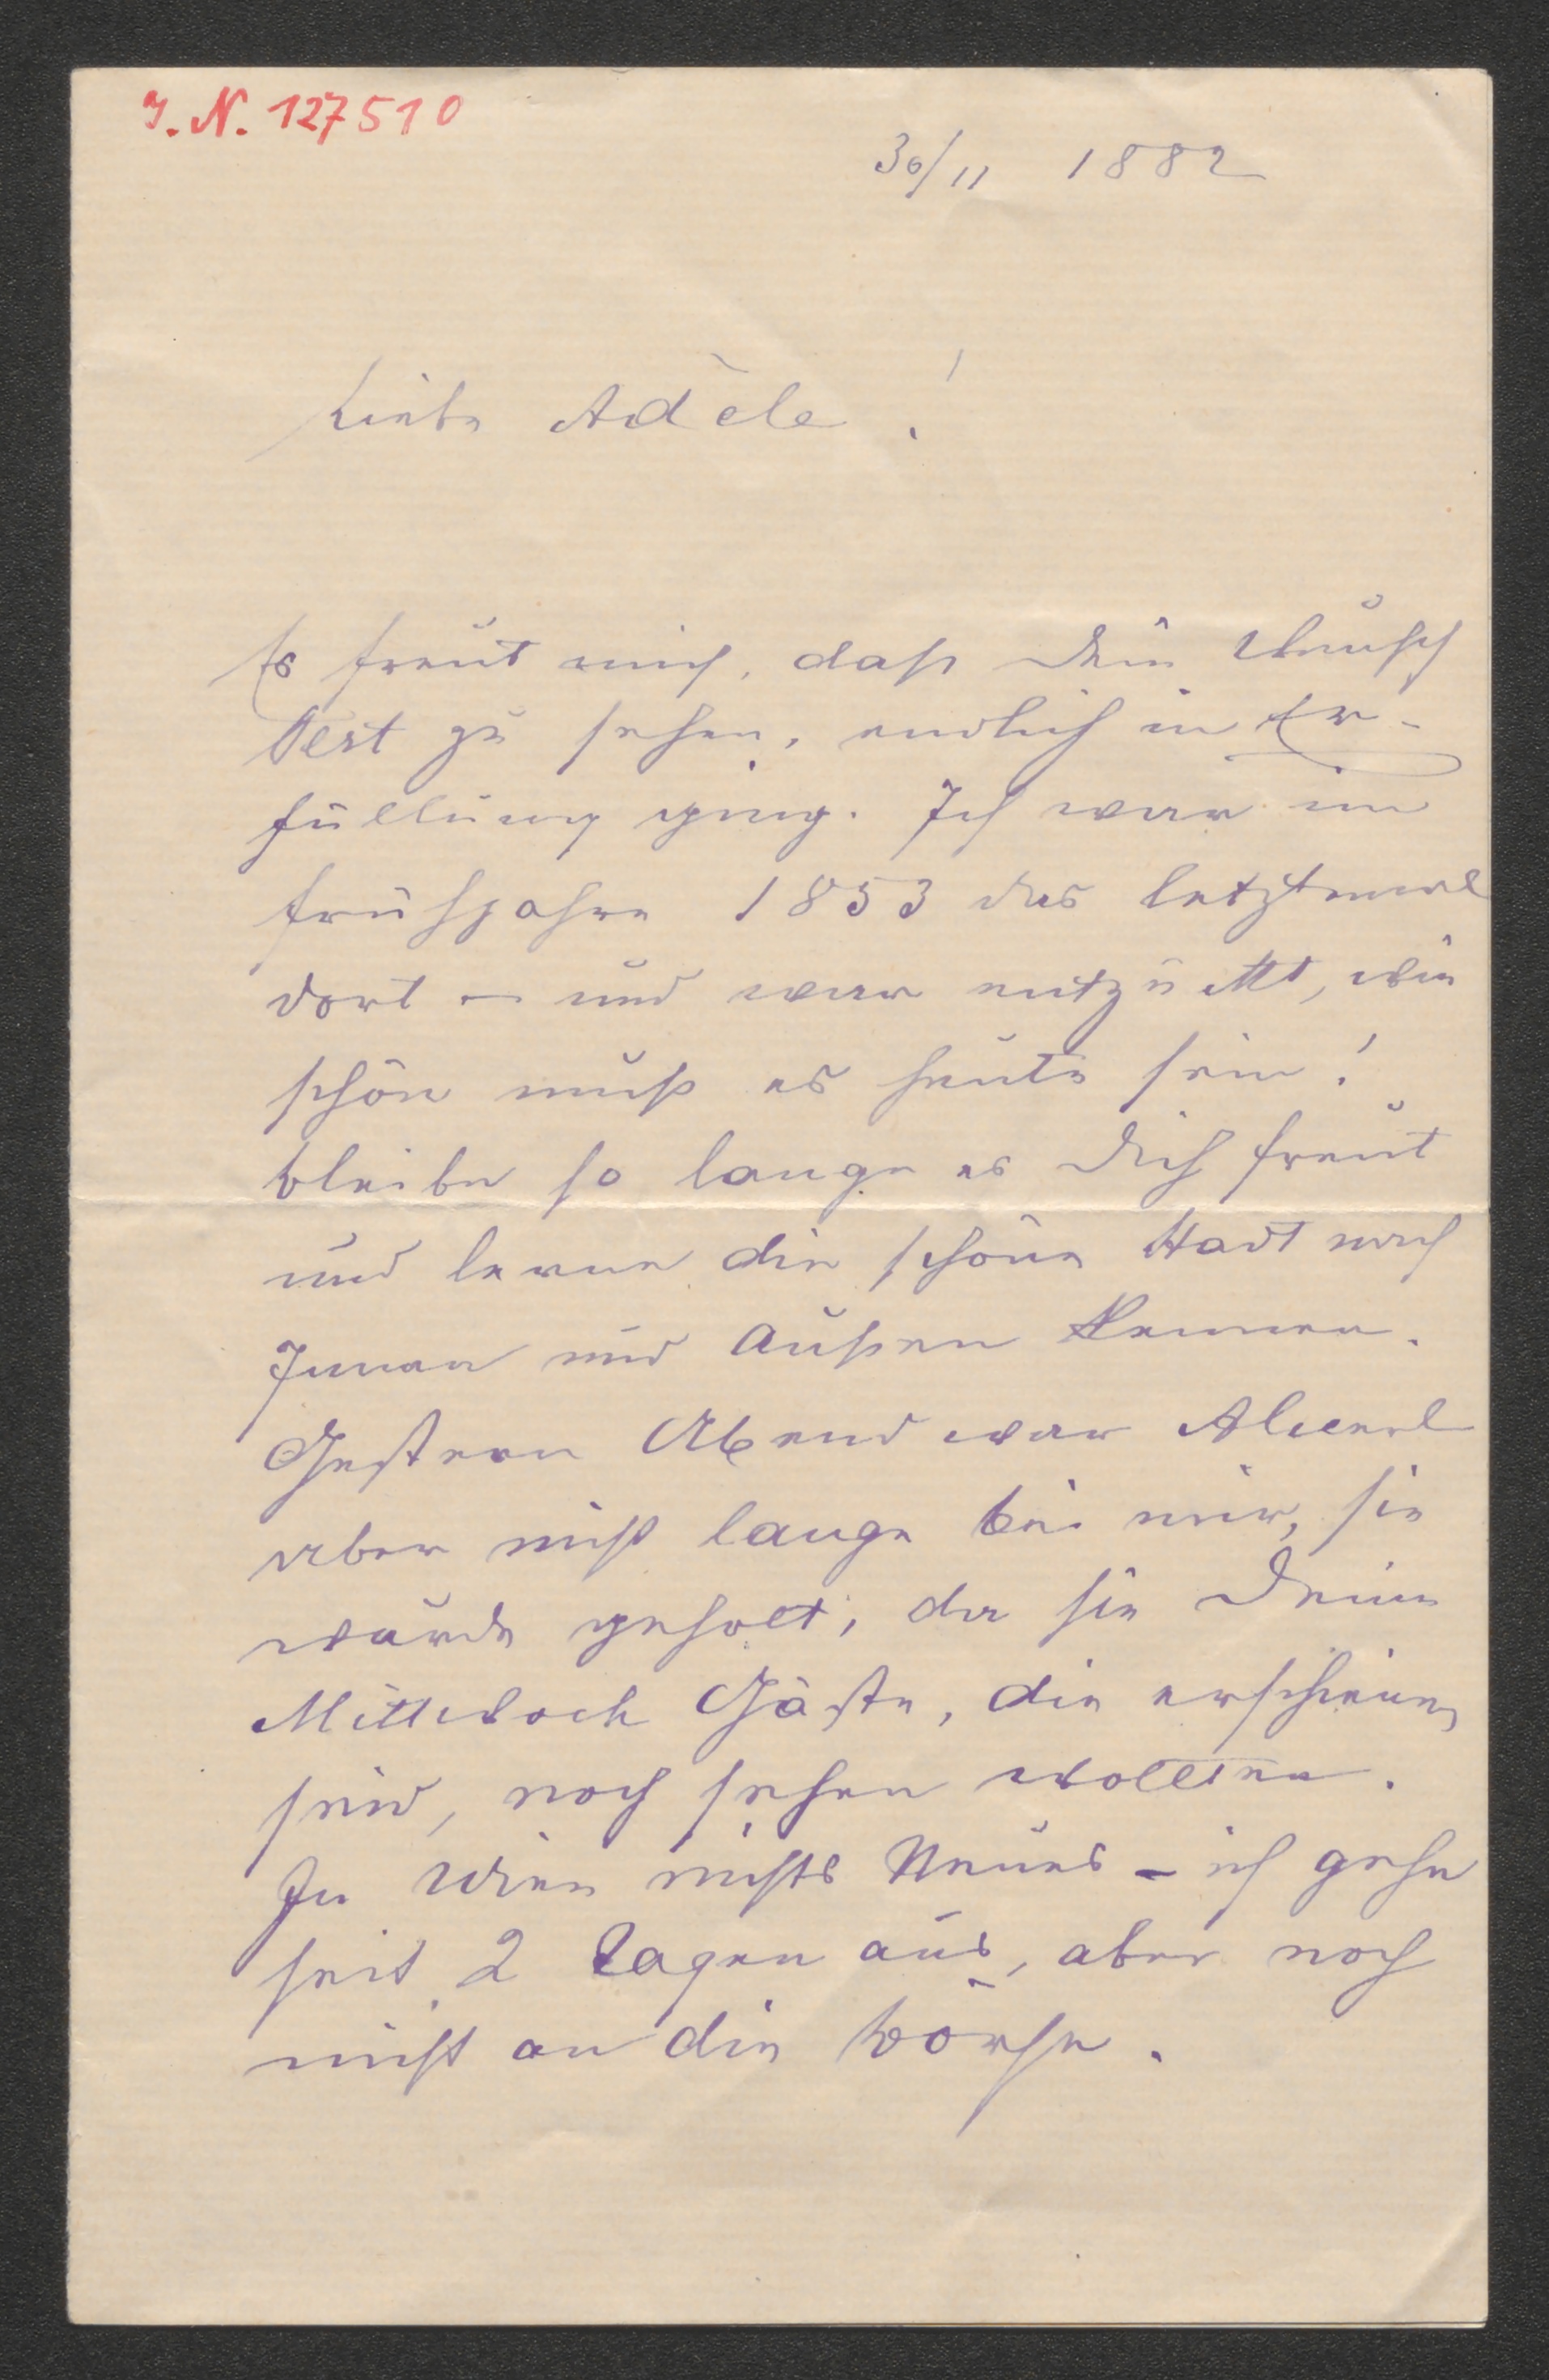 J. N. 127510
30/11 1882
Liebe Adèle!
Es freut mich, dass Dein Wunsch
Pest zu sehen, endlich in Er-
füllung ging. Ich war im
Frühjahre 1853 das letztemal
dort – und war entzückt, wie
schön muß es heute sein!
bleibe so lange es Dich freut
und lerne die schöne Stadt nach
Innen und Außen kennen.
Gestern Abend war
aber nicht lange bei mir, sie
wurde geholt, da sie Deine
Mittwoch Gäste, die erschienen
sind, noch sehen wollten.
In Wien nichts Neues – ich gehe
seit 2 Tagen aus, aber noch
nicht an die Börse.